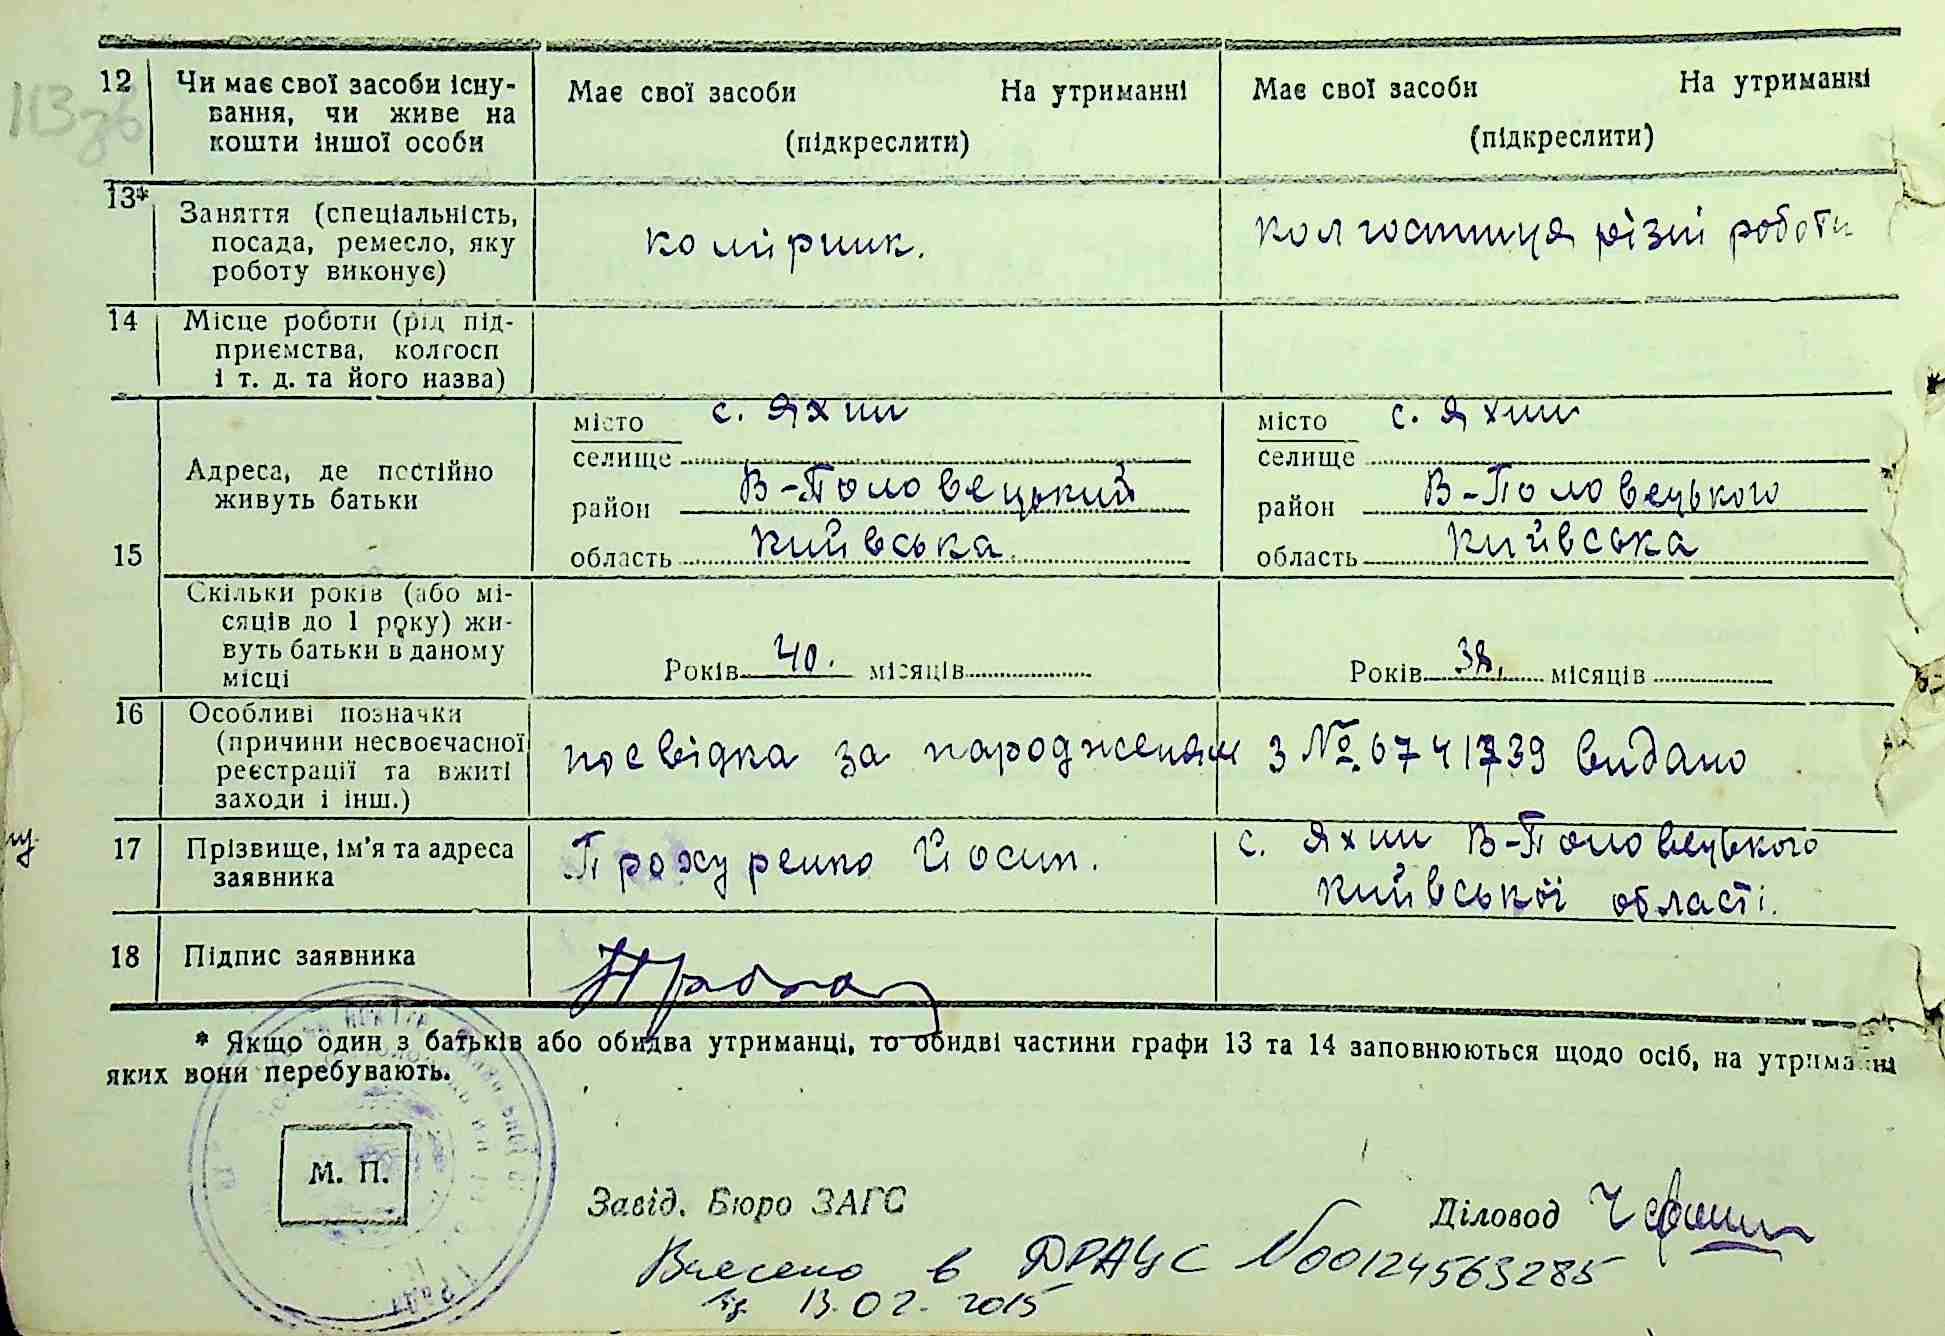 113 зв
12 Чи має свої засоби існу- Має свої засоби На утриманні Має свої засоби На утриманні
вання, чи живе на (підкреслити) (підкреслити)
кошти іншої особи
13* Заняття (спеціальність, комірник. колгоспниця різні роботи
посада, ремесло, яку
роботу виконує)
14 Місце роботи (рід під-
приємства, колгосп
і т. д. та його назва)
15 Адреса, де постійно
живуть батьки
місто с. Яхни місто с. Яхни
селище селище
район В-Половецький район В-Половецького
область Київська. область Київська
Скільки років (або мі-
сяців до 1 року) жи-
вуть батьки в даному
місці
Років 40. місяців Років 38. місяців
16 Особливі позначки
(причини несвоєчасної
реєстрації та вжиті
заходи і інш.)
посвідка за народження з № 6741739 видано
17 Прізвище, ім'я та адреса
заявника
Прохуренко Йосип. с. Яхни В-Половецького
Київської області.
18 Підпис заявника
* Якщо один з батьків або обидва утриманці, то обидві частини графи 13 та 14 заповнюються щодо осіб, на утриманні
яких вони перебувають.
М. П.
Завід. Бюро ЗАГС Діловод
Внесено в ДРАЦС №00124563285
від 13.02.2015